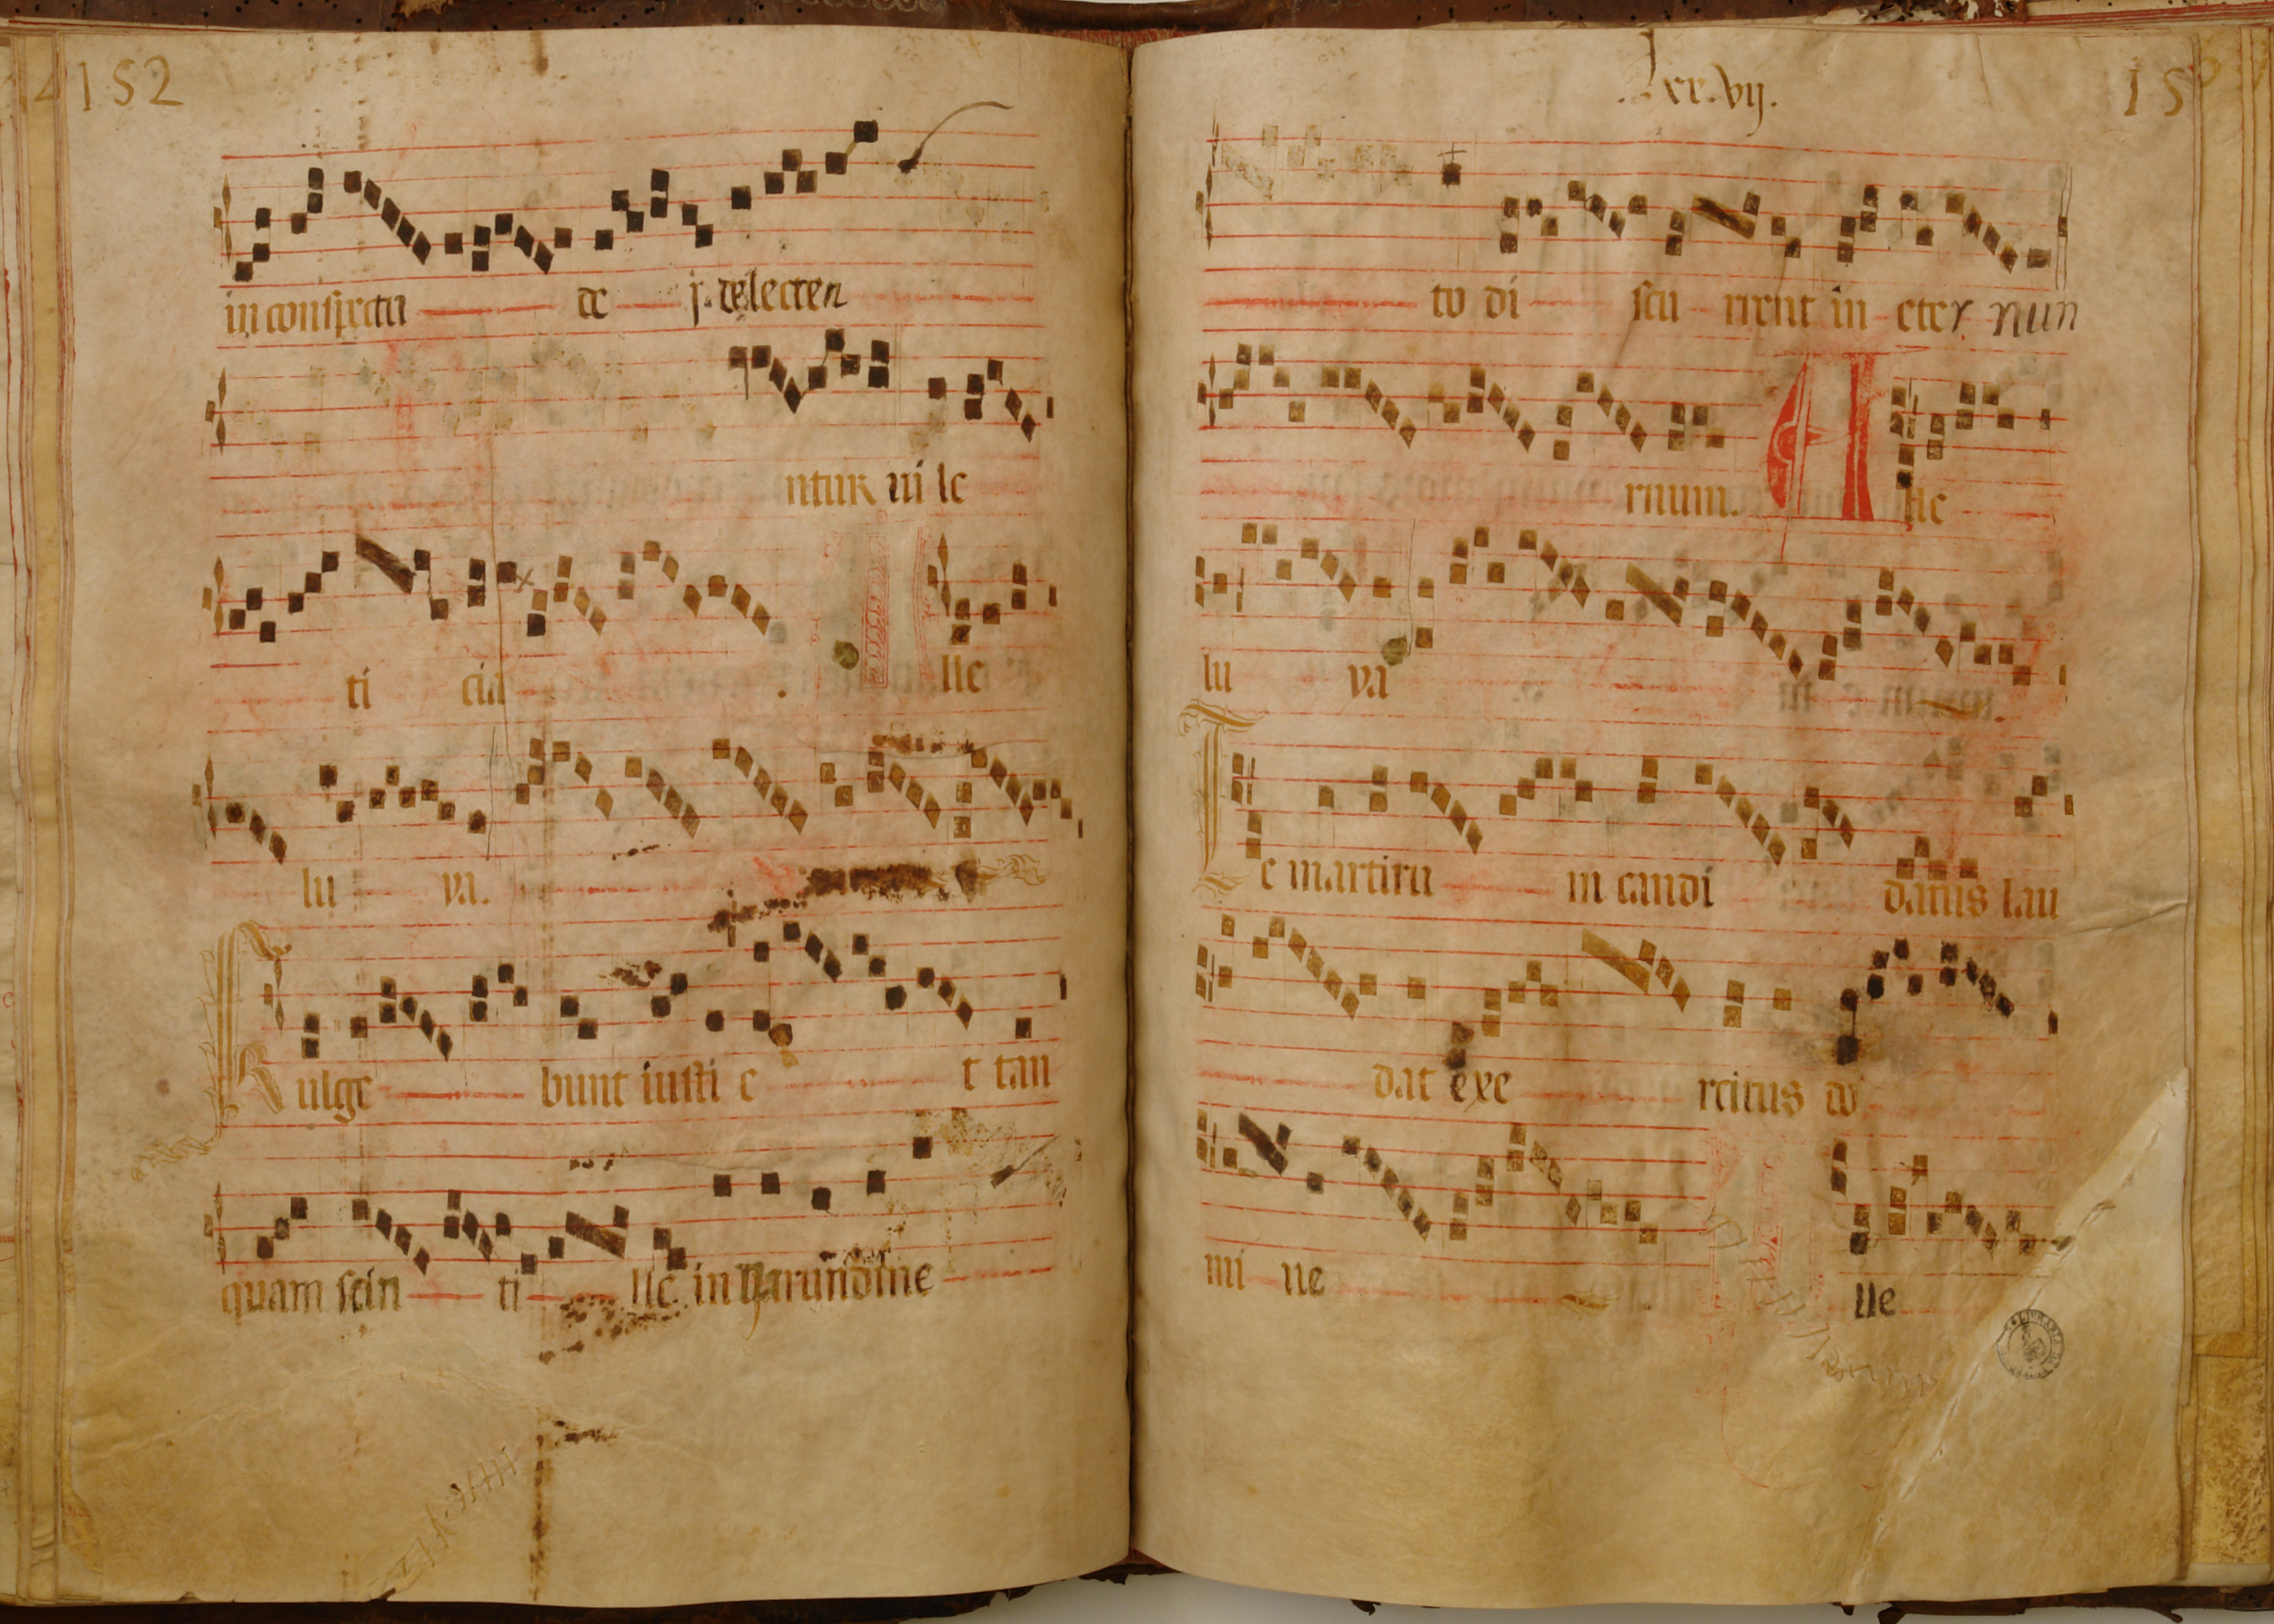 152
in conspectu de i. delecten
ntur in le
ti cia . lle
lu ya.
Fulge bunt iusti e t tan
quam scin ti lle in harundine
lxx.vij.
15
to di scu rrent in eter nun
rnum. A lle
lu ya
Te martiru m candi datus lau
dat exe rcitus do
mi ne lle